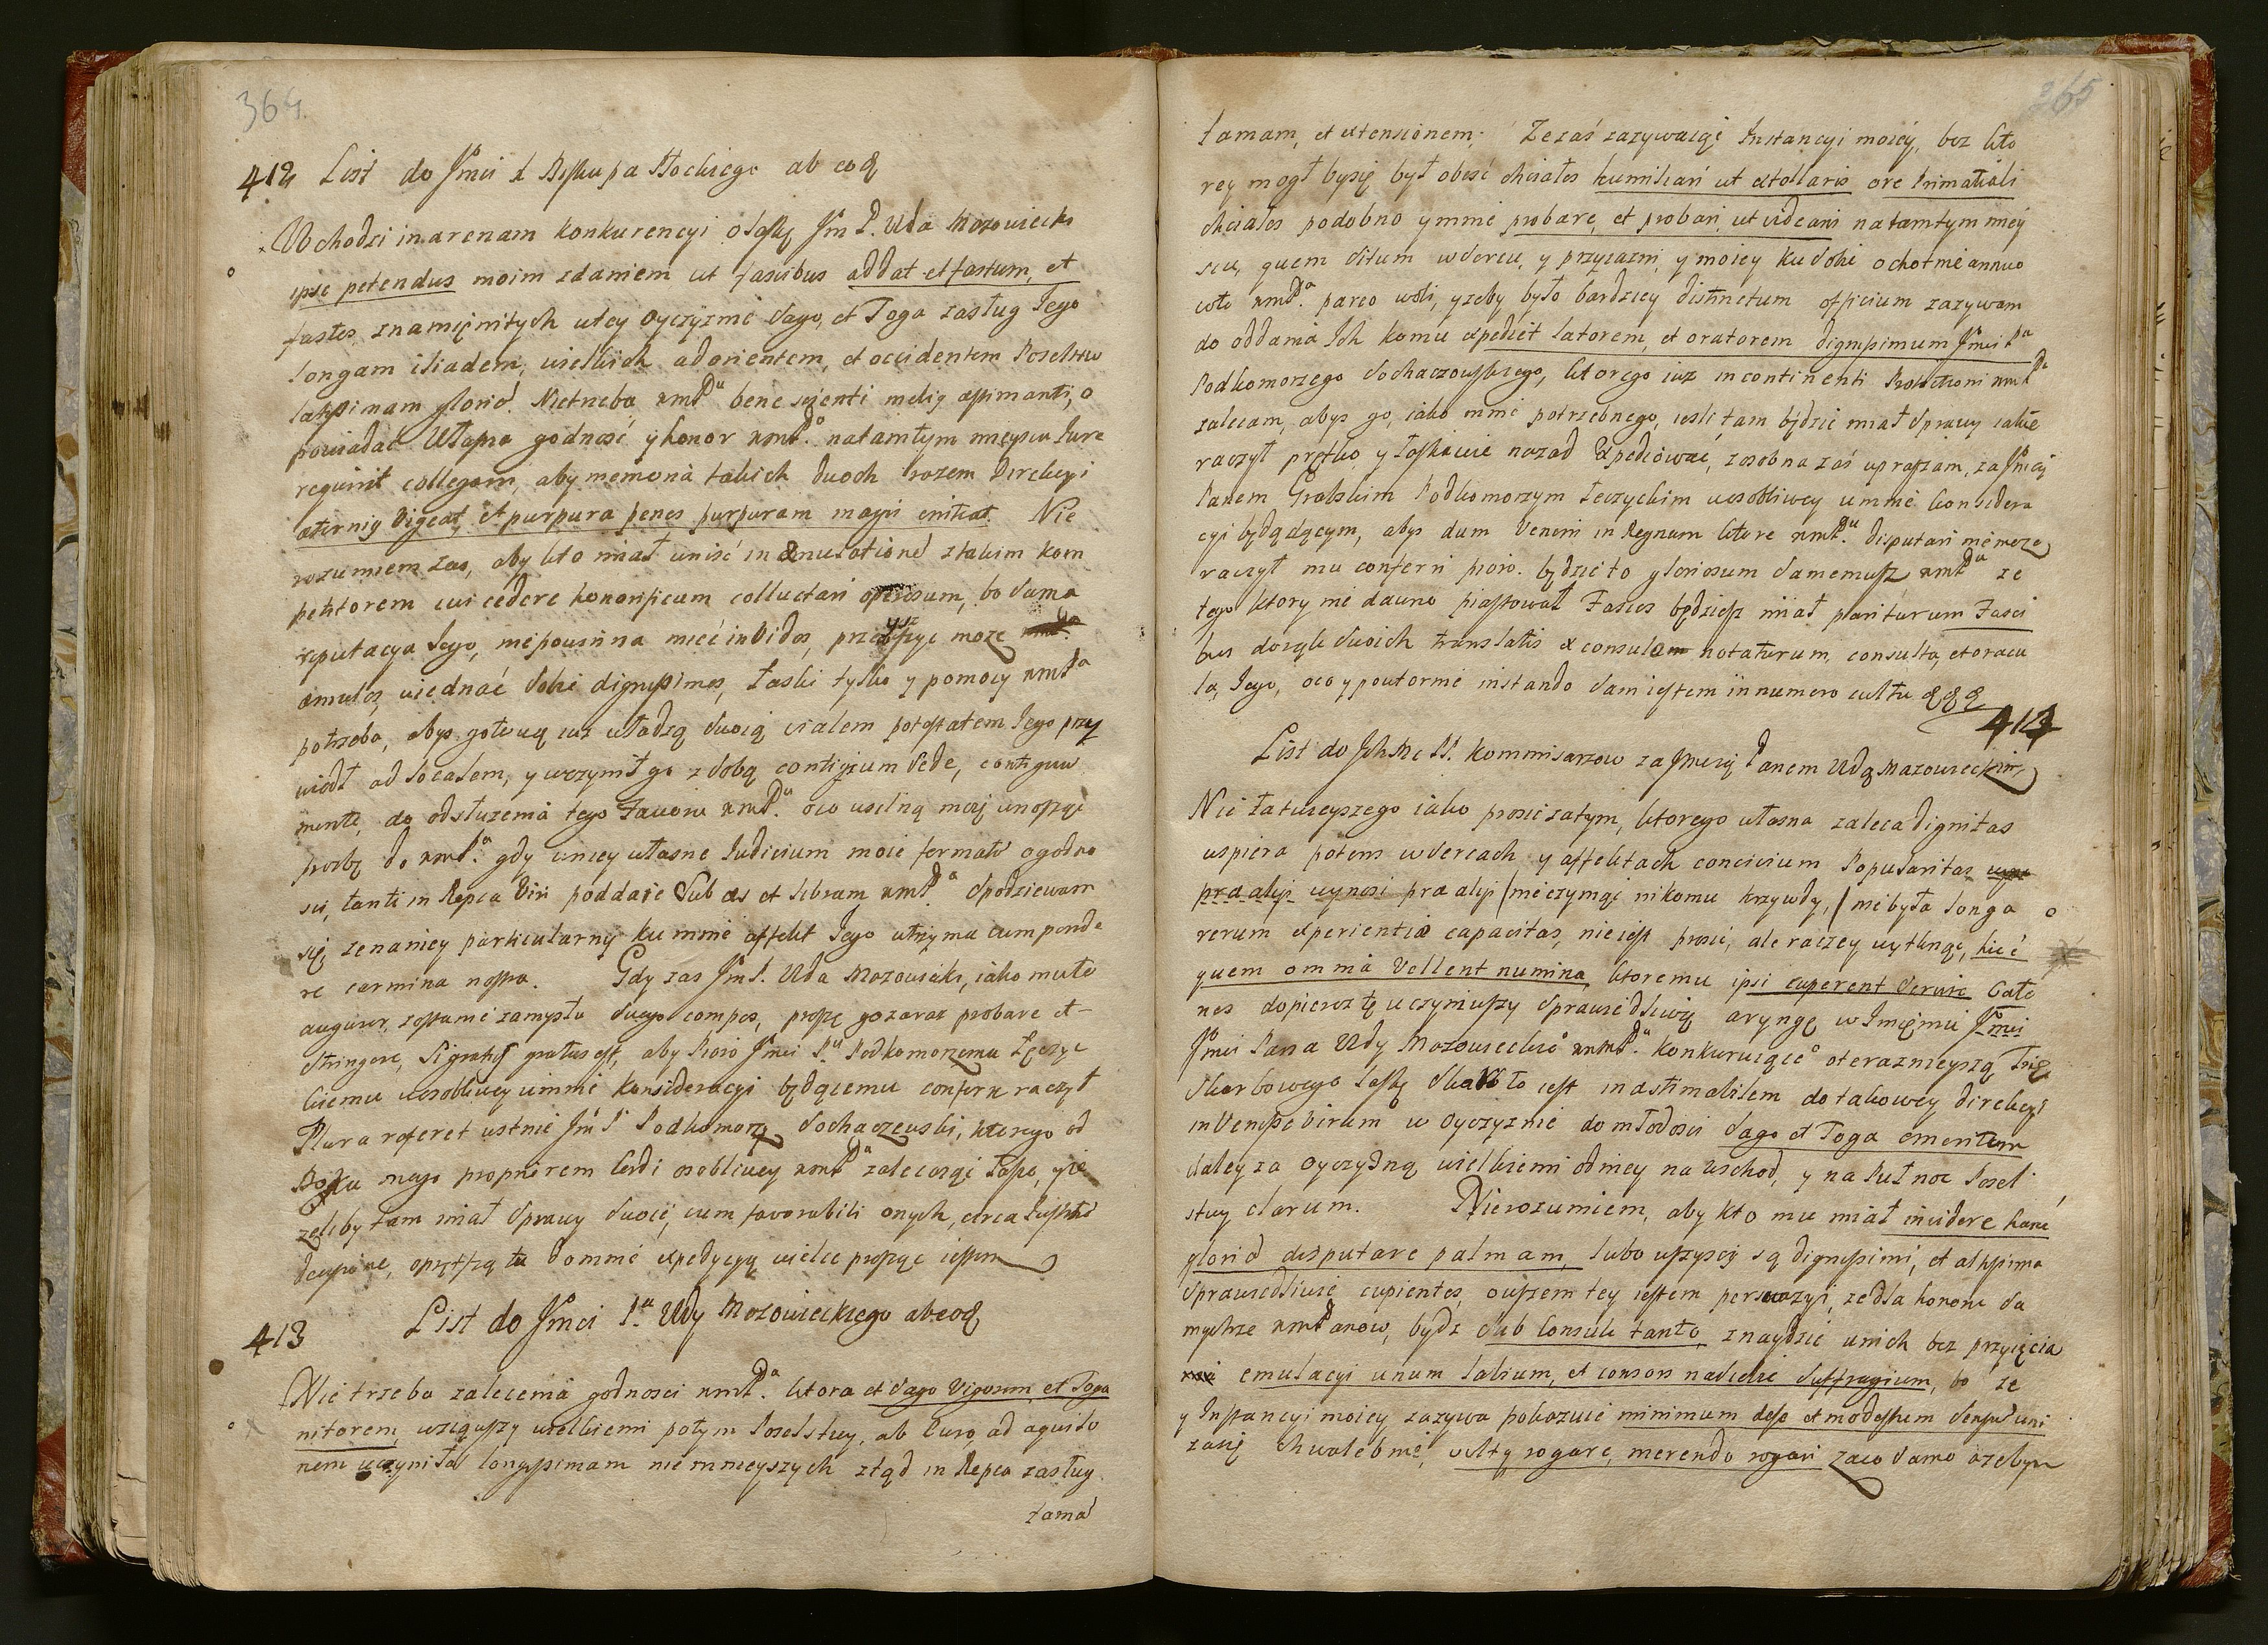 364.
412 List do Jmci X Biskupa Płockiego ab eoq
Wchodzi in arenam konkurencyi o laskę Jm P. Wda Mazowiecki
ipse petendus moim zdaniem ut fascibus addat et fastum, et
fastos, znamięnitych w tey Oyczyznie Sago, et Toga zasług Jego
longam iliadem, wielkich ad orientem, et occidentem Poselstw
latissimam gloriã. Nie trzeba xmći Pu bene scienti melig æstimanti, o
powiadać własna godność y honor xmPo. na tamtym mieyscu Jure
requirit collegam, aby memoria takich dwoch razem Direkcyi
æternig vigeat, et purpura penes purpuram magis eniteat. Nie
rozumiem zas, aby kto miał wniść in æmulationẽ z takim kom
petitorem cui cedere honorificum colluctari operosum, bo sama
reputacya Jego, nie powinna mieć invidos, przewyższyc moze
æmulos, wiednać sobie dignissimos, łaski tylko y pomocy xmPa
potrzeba, abys gotową iuz władzą swoią vialem potestatem Jego przy
wiodł ad localem, y uczynił go z sobą contiguum sede, contiguum
mente, do odsłuzenia tego Favoru xmPu. oco usilną moię wnosząc
prozbę do xmPa. gdy wniey własne Judicium moie formatũ o godno
sci, tanti in Repca Viri poddaię Sub æs et libram xmPa. Spodziewam
się, ze naniey partykularny ku mnie affekt Jego utrzyma cum ponde
re carmina nostra. Gdy zas Jm P. Wda Mazowiecki, iako multo
auguror, zostanie zamysłu swego compos, proszę go zaraz probare et
stringere, Si gratis gratus est, aby Pioro Jmci Pu Podkomorzemu Łęczyc
kiemu w osobliwey u mnie konsideracyi będącemu conferre raczył
Plura referet ustnie Jm P Podkomorzy Sochaczewski, ktorego od
Boku mego propriorem cordi osobliwey xmPa zalecaiąc łasce, y ie
zeliby tam miał sprawy swoie, cum favorabili onych, circa Justitiã
decisione, o prętszą tu do mnie expedycyą wielce prosząc iestem
413 List do Jmci Pa Wdy Mazowieckiego ab eoq
Nie trzeba zalecenia godnosci xmPa. ktora et Sago Vigorem, et Toga
nitorem, wziąwszy wielkiemi potym Poselstwy, ab Euro, ad aquilo
nem uczyniła longissimam nie mnieyszych ztąd in Repca zasług
tamã
365
tamam, et extensionem. Ze zaś zazywaiąc Instancyi moiey, bez kto
rey mogł bysię był obeść chciałes humiliari ut extollaris ore Primatiali
chciałes podobno y mnie probare, et probari, ut videaris na tamtym miey
scu, quem situm w sercu, y przyiazni, y moiey ku sobie ochotnie annuo
coto xmPa. pareo woli, y zeby było bardziey distinctum officium zazywam
do oddania Ich komu expediet latorem, et oratorem dignissimum Jmci Pa
Podkomorzego Sochaczewskiego, ktorego iuz incontinenti Protectioni xmPa
zalecam, abys go, iako mnie potrzebnego, iesli tam będzie miał sprawy iakie
raczył prętko y łaskawie nazad Expediować, zosobna zaś upraszam, za Jmcią
Panem Grabskim Podkomorzym Łeczyckim w osobliwey u mnie Considera
cyi będącącym, abys dum Veneris in Regnum ktore xmPu. disputari nie moze
raczył mu conferri pioro. będzie to gloriosum samemusz xmPu ze
tego ktory nie dawno piastował Fasces będziesz miał pariturum Fasci
bus do ręki swoich translatis ex consulem notaturum, consulta, et oracu
la, Jego, oco y powtornie instando sam iestem in numero cultu &&&
414
List do Ichmc PP. Kommisarzow za Jmcią Panem Wdą Mazowieckim
Nic łatwieyszego iako prosic za tym, ktorego własna zaleca dignitas
wspiera potem w sercach y affektach concivium Popularitas
præ alijs wynosi præ alijs | nie czyniąc nikomu krzywdy, | nie była longa
rerum experientia capacitas, nie iest prosić, ale raczey wytknąć, hic é
quem omnia vellent numina, ktoremu ipsi cuperent servire Cato
nes dopierosz tę uczyniwszy sprawiedliwą aryngę w Imięniu Jmci
Jmci Pana Wdy Mazowieckio xmPu. konkuruiąceo o terazniejszą Trię
Skarbowego laskę Skarb to iest inæstimabilem do takowey direkcyi
invenisse virum w Oyczyznie do młodosci Sago et Toga emeritum
daley za Oyczyzną wielkiemi od niey na wschod, y na Pułnoc Posel
stwy clarum. Nierozumiem, aby kto mu miał invidere hanc
gloriã disputare palmam, lubo wszyscy są dignissimi, et altissima
sprawiedliwie cupientes, owszem tey iestem perswazyi, ze dla honoru sa
mychze xmPanow, bydz sub Consule tanto, znaydzie u nich bez przyięcia
emulacyi unum labium, et consors nadedie suffragium, bo ze
y Instancyi moiey zazywa pokazuie minimum de se et modestum sensum uni
zaiąc chwalebnie, vultq rogare, merendo rogari zaco samo azebym